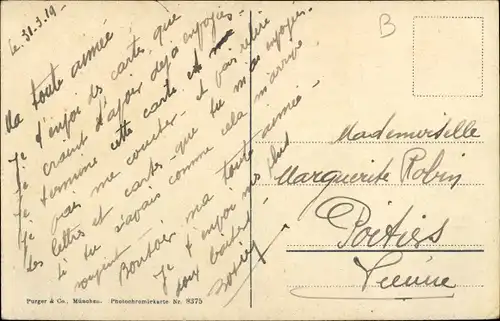 Le 31.3.19-
Ma toute aimée
Je t'envoi des cartes, que
je craint d'avoir déjà envoyées-
Je termine cette carte et
Je vais me coucher- et vais relire
des lettres et cartes- que tu m'as envoyées-
Si tu savais comme cela m'arrive
souvent- Bonsoir ma toute aimée-
Je t'envoi mes plus
doux baisers-
B
Mademoiselle
Marguerite Robin
Poitiers
Vienne
Purger & Co., München. Photochromiekarte Nr. 8375